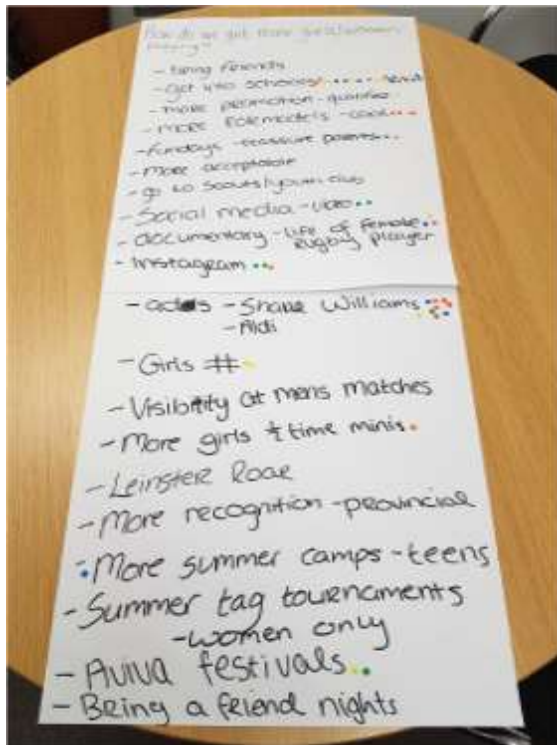 How do we get more girls/women playing?
- Being friendly
- Get into schools
- More promotion -
- More role models -
- Fundays - reassure parents
- More acceptable
- go to Scouts/youth club
- Social media - video
- documentary - life of female
rugby player
- Instagram
- ads - Shane Williams
- Aldi
- Girls #
- Visibility at mens matches
- More girls ½ time minis
- Leinster Roar
- More recognition - provincial
- More summer camps - teens
- Summer tag tournaments
- women only
- Aviva festivals
- Being a friend nights